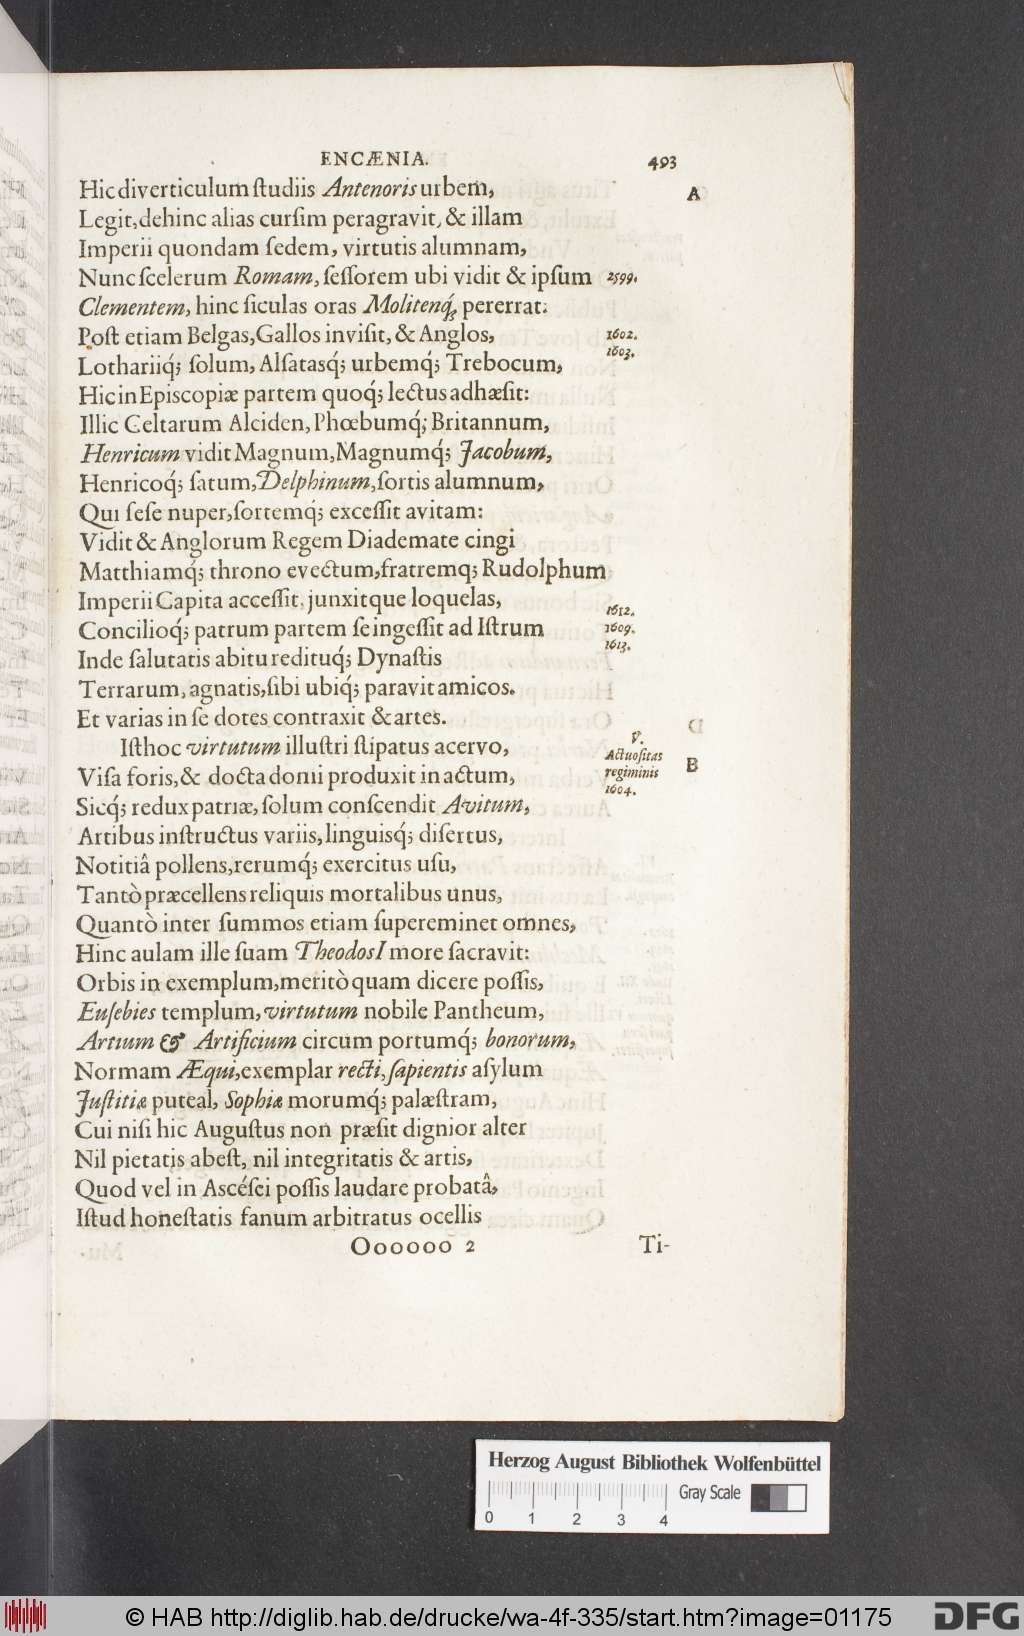 ENCÆNIA. 493
Hic diverticulum ſtudiis Antenoris urbem, A
Legit, dehinc alias curſim peragravit, & illam
Imperii quondam ſedem, virtutis alumnam,
Nunc ſcelerum Romam, ſeſſorem ubi vidit & ipſum 2599.
Clementem, hinc ſiculas oras Molitenq́; pererrat:
Poſt etiam Belgas, Gallos inviſit, & Anglos, 1602.
1603.
Lothariiq́; ſolum, Alſatasq́; urbemq́; Trebocum,
Hic in Epiſcopiæ partem quoq́; lectus adhæſit:
Illic Celtarum Alciden, Phœbumq́; Britannum,
Henricum vidit Magnum, Magnumq́; Jacobum,
Henricoq́; ſatum, Delphinum, ſortis alumnum,
Qui ſeſe nuper, ſortemq́; exceſſit avitam:
Vidit & Anglorum Regem Diademate cingi
Matthiamq́; throno evectum, fratremq; Rudolphum
Imperii Capita acceſſit, junxitque loquelas, 1612.
Concilioq́; patrum partem ſe ingeſſit ad Iſtrum 1609.
1613.
Inde ſalutatis abitu redituq́; Dynaſtis
Terrarum, agnatis, ſibi ubiq́; paravit amicos.
Et varias in ſe dotes contraxit & artes.
Iſthoc virtutum illuſtri ſtipatus acervo, V.
Actuoſitas
regiminis
1604.
B
Viſa foris, & docta donii produxit in actum,
Sicq́; redux patriæ, ſolum conſcendit Avitum,
Artibus inſtructus variis, linguisq́; diſertus,
Notitiâ pollens, rerumq́; exercitus uſu,
Tantò præcellens reliquis mortalibus unus,
Quantò inter ſummos etiam ſupereminet omnes,
Hinc aulam ille ſuam TheodosI more ſacravit:
Orbis in exemplum, meritò quam dicere poſſis,
Euſebies templum, virtutum nobile Pantheum,
Artium & Artificium circum portumq́; bonorum,
Normam Æqui, exemplar recti, ſapientis aſylum
Juſtitiæ puteal, Sophiæ morumq́; palæſtram,
Cui niſi hic Auguſtus non præſit dignior alter
Nil pietatis abeſt, nil integritatis & artis,
Quod vel in Ascéſei poſſis laudare probatâ,
Iſtud honeſtatis fanum arbitratus ocellis
Oooooo 2 Ti-
Herzog August Bibliothek Wolfenbüttel
Gray Scale
0 1 2 3 4
© HAB http://diglib.hab.de/drucke/wa-4f-335/start.htm?image=01175 DFG